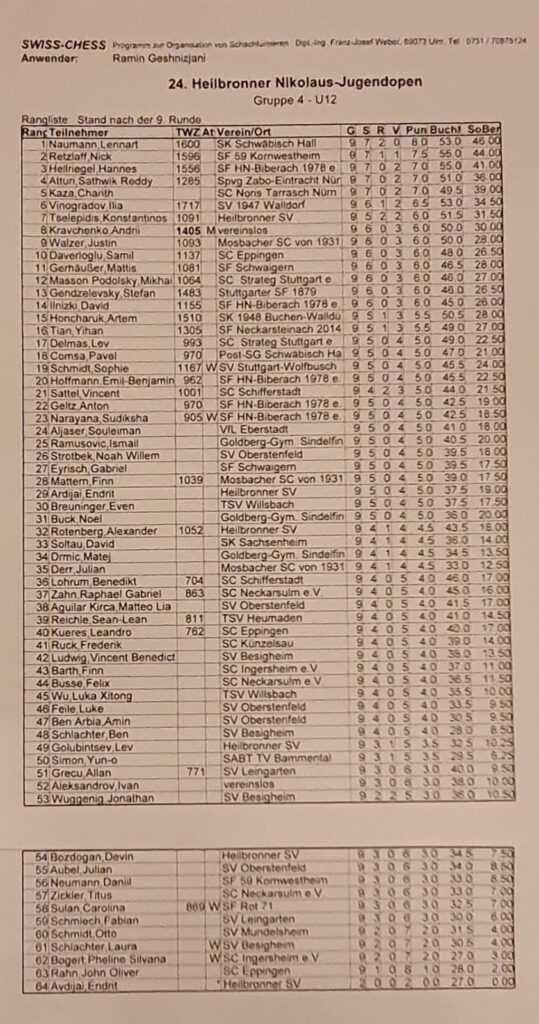 SWISS-CHESS Programm zur Organisation von Schachturnieren Dipl.-Ing. Franz-Josef Weber, 89073 Ulm, Tel.: 0731 / 70875124
Anwender: Ramin Geshnizjani
24. Heilbronner Nikolaus-Jugendopen
Gruppe 4 - U12
Rangliste: Stand nach der 9. Runde
Rang Teilnehmer TWZ At Verein/Ort G S R V Pun Buchh SoBer
1 Naumann,Lennart 1600 SK Schwäbisch Hall 9 7 2 0 8.0 53.0 46.00
2 Retzlaff,Nick 1596 SF 59 Kornwestheim 9 7 1 1 7.5 55.0 44.00
3 Hellriegel,Hannes 1556 SF HN-Biberach 1978 e. 9 7 0 2 7.0 55.0 41.00
4 Alturi,Sathwik Reddy 1285 Spvg Zabo-Eintracht Nür 9 7 0 2 7.0 51.0 36.00
5 Kaza,Charith SC Noris Tarrasch Nürn 9 7 0 2 7.0 49.5 39.00
6 Vinogradov,Ilia 1717 SV 1947 Walldorf 9 6 1 2 6.5 53.0 34.50
7 Tselepidis,Konstantinos 1091 Heilbronner SV 9 5 2 2 6.0 51.5 31.50
8 Kravchenko,Andrii 1405 M vereinslos 9 6 0 3 6.0 50.0 30.00
9 Walzer,Justin 1093 Mosbacher SC von 1931 9 6 0 3 6.0 50.0 28.00
10 Daverioglu,Samil 1137 SC Eppingen 9 6 0 3 6.0 48.0 26.50
11 Gerhäußer,Mattis 1081 SF Schwaigern 9 6 0 3 6.0 46.5 28.00
12 Masson Podolsky,Mikhai 1064 SC Strateg Stuttgart e. 9 6 0 3 6.0 46.0 27.00
13 Gendzelevsky,Stefan 1483 Stuttgarter SF 1879 9 6 0 3 6.0 46.0 26.50
14 Ilnizki,David 1155 SF HN-Biberach 1978 e. 9 6 0 3 6.0 45.0 26.00
15 Honcharuk,Artem 1510 SK 1948 Buchen-Walldü 9 5 1 3 5.5 50.5 28.00
16 Tian,Yihan 1305 SF Neckarsteinach 2014 9 5 1 3 5.5 49.0 27.00
17 Delmas,Lev 993 SC Strateg Stuttgart e. 9 5 0 4 5.0 49.0 22.50
18 Comsa,Pavel 970 Post-SG Schwäbisch Ha 9 5 0 4 5.0 47.0 21.00
19 Schmidt,Sophie 1167 W SV Stuttgart-Wolfbusch 9 5 0 4 5.0 45.5 24.00
20 Hoffmann,Emil-Benjamin 962 SF HN-Biberach 1978 e. 9 5 0 4 5.0 45.5 22.50
21 Sattel,Vincent 1001 SC Schifferstadt 9 4 2 3 5.0 44.0 21.50
22 Geltz,Anton 970 SF HN-Biberach 1978 e. 9 5 0 4 5.0 42.5 19.00
23 Narayana,Sudiksha 905 W SF HN-Biberach 1978 e. 9 5 0 4 5.0 42.5 18.50
24 Aljaser,Souleiman VfL Eberstadt 9 5 0 4 5.0 41.0 18.00
25 Ramusovic,Ismail Goldberg-Gym. Sindelfin 9 5 0 4 5.0 40.5 20.00
26 Strotbek,Noah Willem SV Oberstenfeld 9 5 0 4 5.0 39.5 18.00
27 Eyrisch,Gabriel SF Schwaigern 9 5 0 4 5.0 39.5 17.50
28 Mattern,Finn 1039 Mosbacher SC von 1931 9 5 0 4 5.0 39.0 17.50
29 Ardijai,Endrit Heilbronner SV 9 5 0 4 5.0 37.5 19.00
30 Breuninger,Even TSV Willsbach 9 5 0 4 5.0 37.5 17.50
31 Buck,Noel Goldberg-Gym. Sindelfin 9 5 0 4 5.0 36.0 20.00
32 Rotenberg,Alexander 1052 Heilbronner SV 9 4 1 4 4.5 43.5 16.00
33 Soltau,David SK Sachsenheim 9 4 1 4 4.5 36.0 14.00
34 Drmic,Matej Goldberg-Gym. Sindelfin 9 4 1 4 4.5 34.5 13.50
35 Derr,Julian Mosbacher SC von 1931 9 4 1 4 4.5 33.0 12.50
36 Lohrum,Benedikt 704 SC Schifferstadt 9 4 0 5 4.0 46.0 17.00
37 Zahn,Raphael Gabriel 863 SC Neckarsulm e.V. 9 4 0 5 4.0 45.0 16.00
38 Aguilar Kirca,Matteo Lia SV Oberstenfeld 9 4 0 5 4.0 41.5 17.00
39 Reichle,Sean-Lean 811 TSV Heumaden 9 4 0 5 4.0 41.0 14.50
40 Kueres,Leandro 762 SC Eppingen 9 4 0 5 4.0 40.0 17.00
41 Ruck,Frederik SC Künzelsau 9 4 0 5 4.0 39.0 14.00
42 Ludwig,Vincent Benedict SV Besigheim 9 4 0 5 4.0 38.0 13.50
43 Barth,Finn SC Ingersheim e.V. 9 4 0 5 4.0 37.0 11.00
44 Busse,Felix SC Neckarsulm e.V. 9 4 0 5 4.0 36.5 11.50
45 Wu,Luka Xitong TSV Willsbach 9 4 0 5 4.0 35.5 10.00
46 Feile,Luke SV Oberstenfeld 9 4 0 5 4.0 33.5 9.50
47 Ben Arbia,Amin SV Oberstenfeld 9 4 0 5 4.0 30.5 9.50
48 Schlachter,Ben SV Besigheim 9 4 0 5 4.0 28.0 8.50
49 Golubintsev,Lev Heilbronner SV 9 3 1 5 3.5 32.5 10.25
50 Simon,Yun-o SABT TV Bammental 9 3 1 5 3.5 29.5 6.25
51 Grecu,Allan 771 SV Leingarten 9 3 0 6 3.0 40.0 9.50
52 Aleksandrov,Ivan vereinslos 9 3 0 6 3.0 38.0 10.00
53 Wuggenig,Jonathan SV Besigheim 9 2 2 5 3.0 36.0 10.50
54 Bozdogan,Devin Heilbronner SV 9 3 0 6 3.0 34.5 7.50
55 Aubel,Julian SV Oberstenfeld 9 3 0 6 3.0 34.0 8.50
56 Neumann,Daniil SF 59 Kornwestheim 9 3 0 6 3.0 33.0 7.00
57 Zickler,Titus SC Neckarsulm e.V. 9 3 0 6 3.0 33.0 7.00
58 Sulan,Carolina 869 W SF Rot 71 9 3 0 6 3.0 32.5 7.00
59 Schmiech,Fabian SV Leingarten 9 3 0 6 3.0 30.0 6.00
60 Schmidt,Otto SV Mundelsheim 9 2 0 7 2.0 31.5 4.00
61 Schlachter,Laura W SV Besigheim 9 2 0 7 2.0 30.5 4.00
62 Bogert,Pheline Silvana W SC Ingersheim e.V. 9 2 0 7 2.0 27.0 3.00
63 Rahn,John Oliver SC Eppingen 9 1 0 8 1.0 28.0 2.00
64 Avdijai,Endrit * Heilbronner SV 2 0 0 2 0.0 27.0 0.00